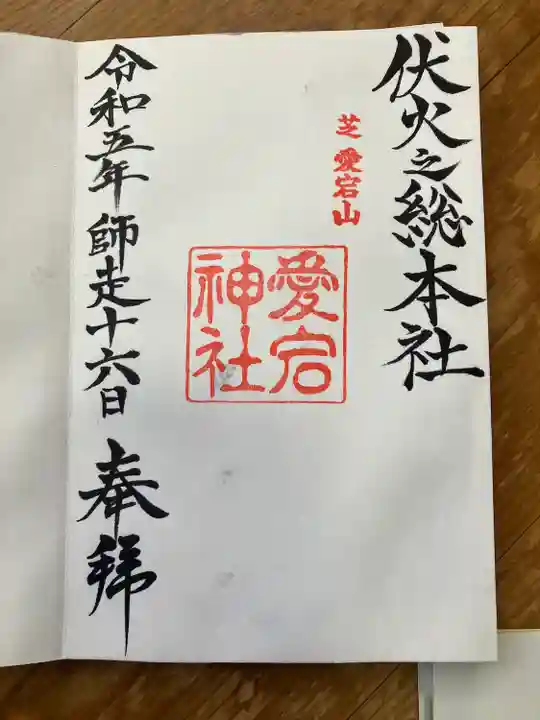 伏火之総本社
芝 愛宕山
愛宕
神社
令和五年 師走十六日 奉拝